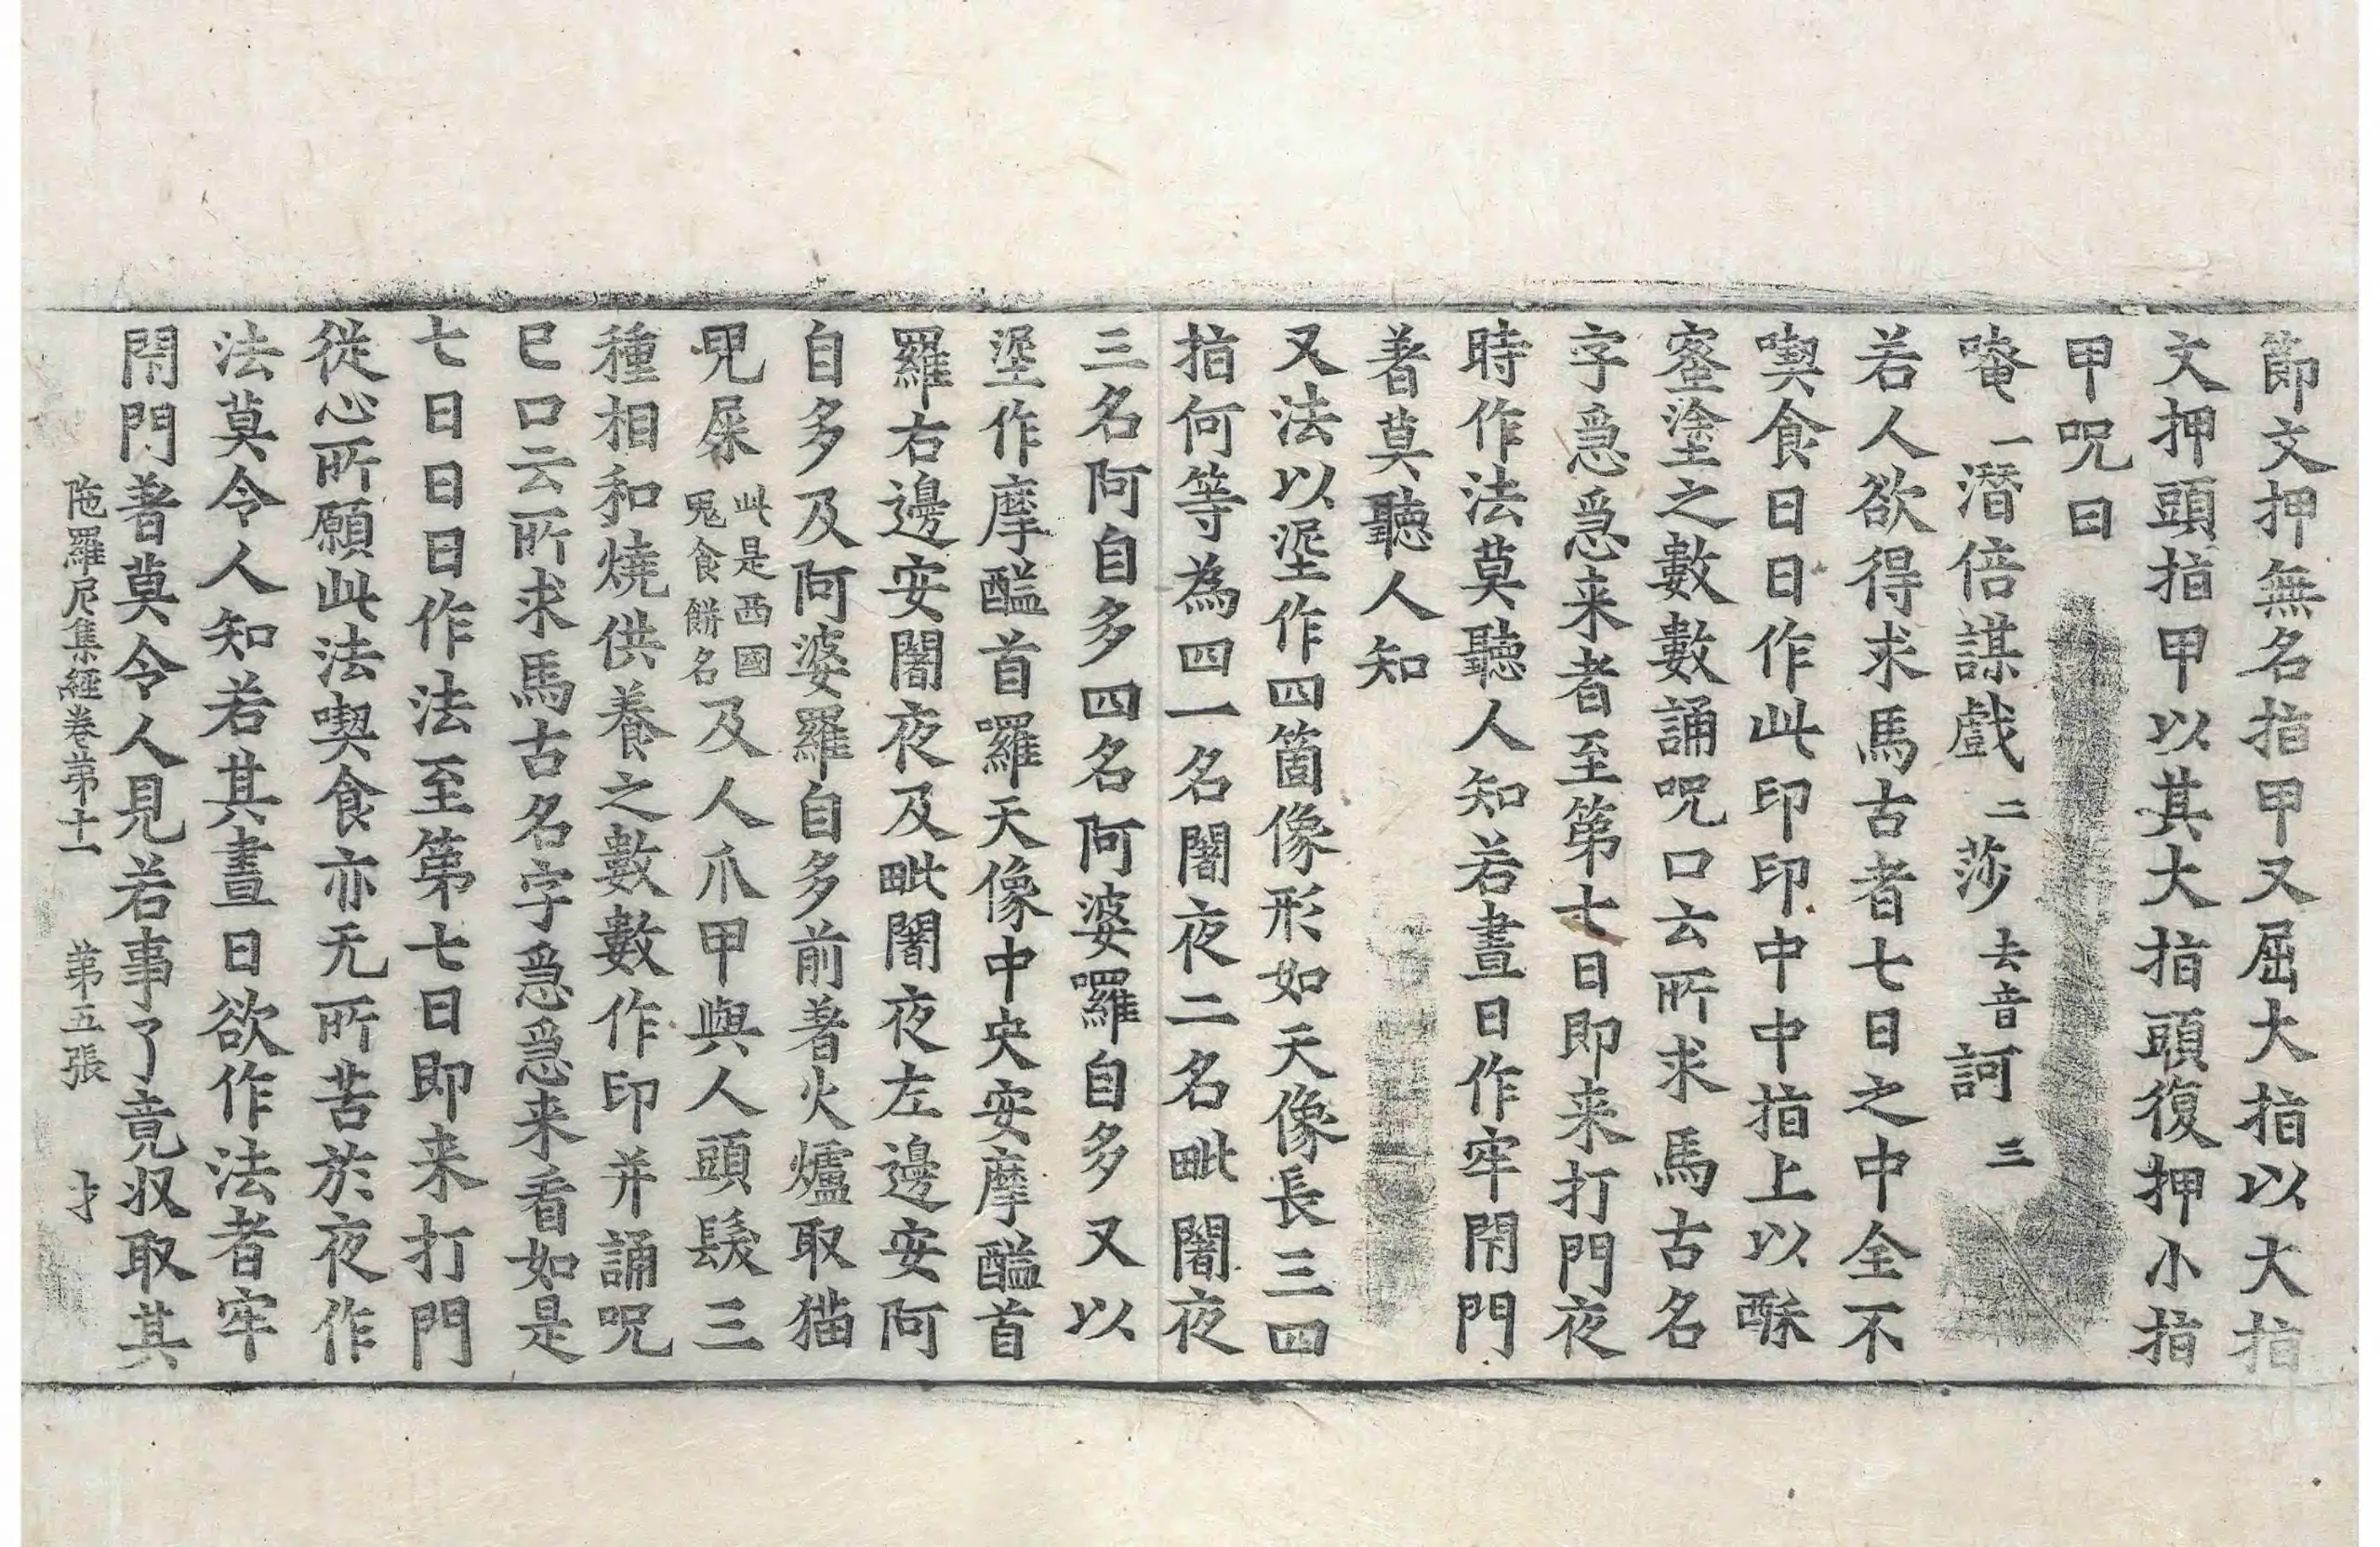 節文押無名指甲又屈大指以大指
文押頭指甲以其大指頭復押小指
甲呪曰
唵一潛倍謀戲二莎去音訶三
若人欲得求馬古者七日之中全不
喫食日日作此印印中中指上以酥
蜜塗之數數誦呪口云所求馬古名
字急急来者至第七日即来打門夜
時作法莫聽人知若晝日作牢閇門
著莫聽人知
又法以埿作四箇像形如天像長三四
指何等為四一名闇夜二名毗闇夜
三名阿自多四名阿婆囉自多又以
埿作摩醯首囉天像中央安摩醯首
羅右邊安闇夜及毗闇夜左邊安阿
自多及阿婆羅自多前著火爐取猫
兒屎此是西國鬼食餅名及人爪甲與人頭髮三
種相和燒供養之數數作印并誦呪
已口云所求馬古名字急急来看如是
七日日日作法至第七日即来打門
從心所願此法喫食亦无所苦於夜作
法莫令人知若其晝日欲作法者牢
閇門著莫令人見若事了竟收取其
陁羅尼集經卷第十一 第五張 才